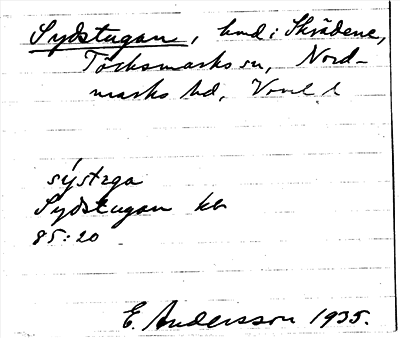 Sydstugan, hmd i Skrädene,
Töcksmarks sn, Nord-
marks hd, Vrml. l
sýstɜga
Sydstugan kb
85:20
E. Andersson 1935.